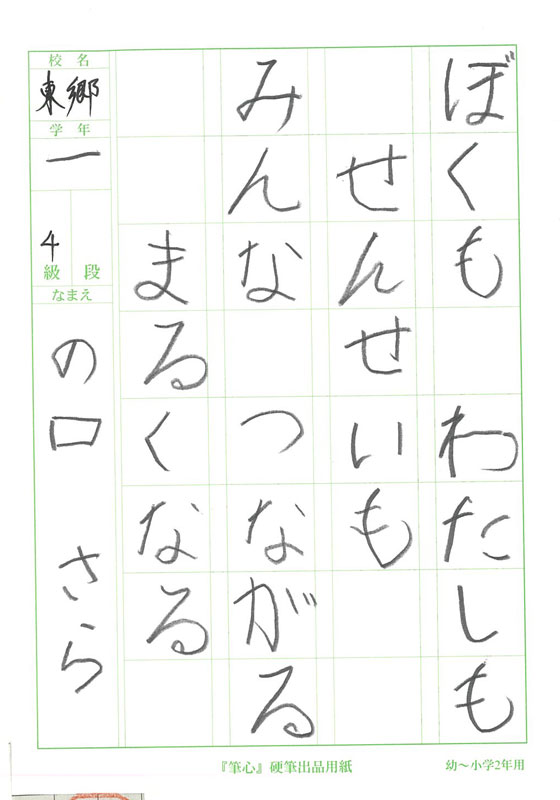 ぼくも わたしも
せんせいも
みんな つながる
まるくなる
校名
東郷
学年
一
4
級 段
なまえ
の口 さら
『筆心』硬筆出品用紙
幼～小学2年用